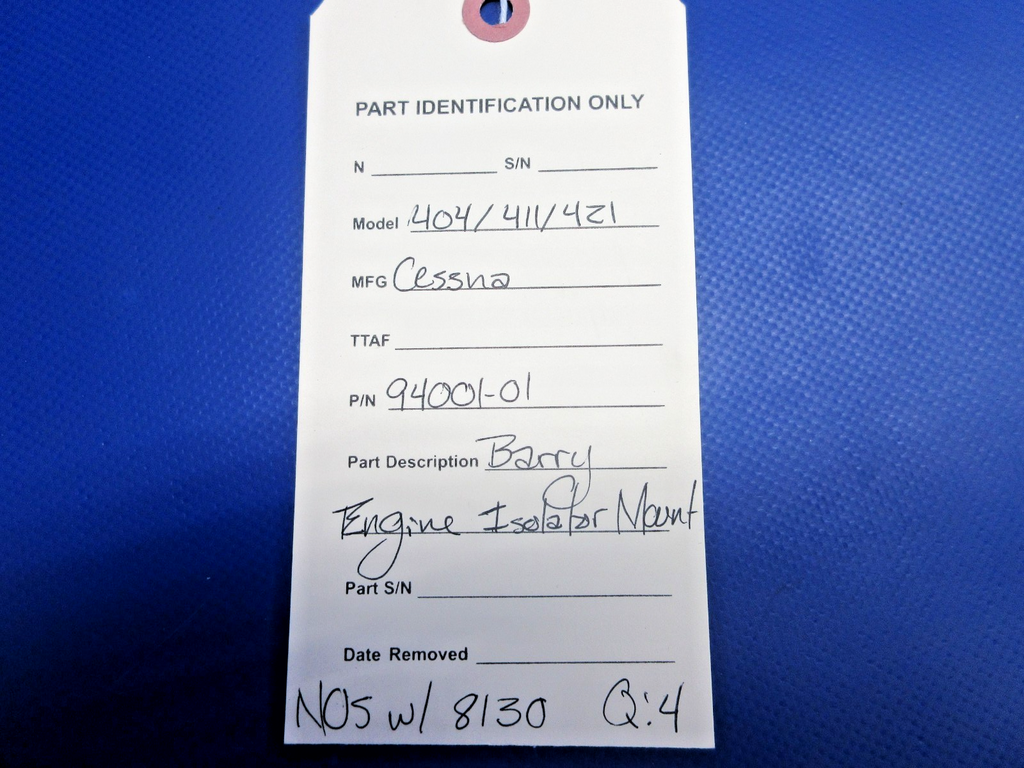 PART IDENTIFICATION ONLY
N S/N
Model 404/411/421
MFG Cessna
TTAF
P/N 94001-01
Part Description Barry
Engine Isolator Mount
Part S/N
Date Removed
NOS w/ 8130 Q:4